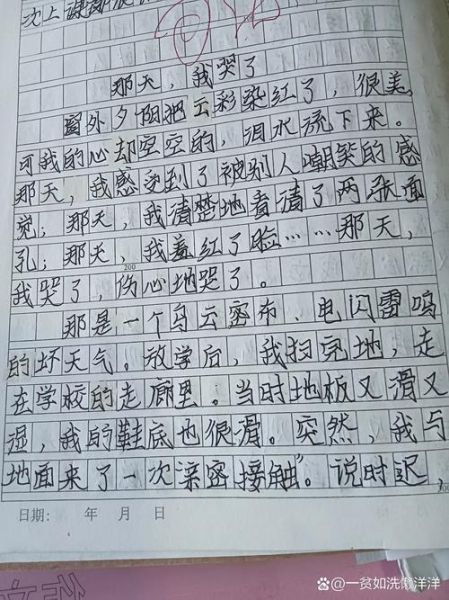 次上课都
那天，我哭了
窗外夕阳把云彩染红了，很美。
可我的心却空空的，泪水流下来。
那天，我感受到了被别人嘲笑的感
觉；那天，我清楚地看清了两张面
孔；那天，我羞红了脸……那天，
200
我哭了，伤心地哭了。
那是一个乌云密布、电闪雷鸣
的坏天气。放学后，我扫完地，走
在学校的走廊里。当时地板又滑又
湿，我的鞋底也很滑。突然，我与
地面来了一次"亲密接触"。说时迟，
日期： 年 月 日
知乎 @一贫如洗懒洋洋